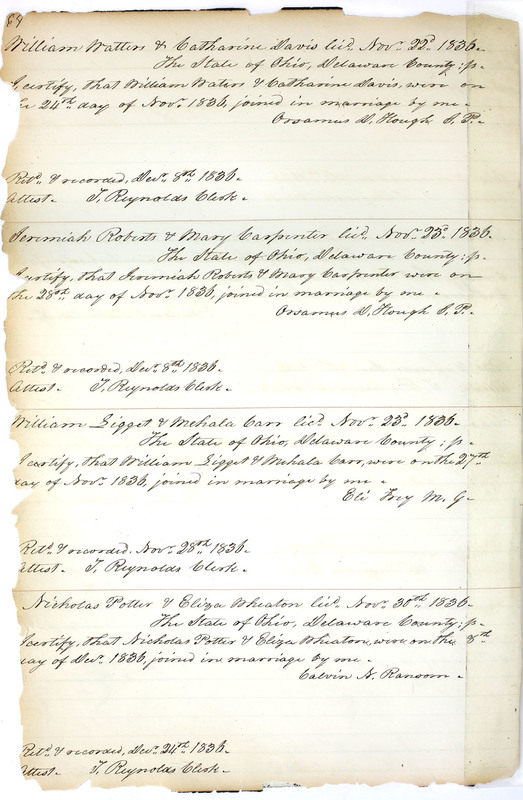 68
William Watters & Catharine Davis licd. Novr. 22d 1836.
The State of Ohio, Delaware County: ss.
I certify, that William Waters & Catharine Davis, were on
the 24th day of Novr. 1836, joined in marriage by me.
Orsamus D. Hough J. P.
Retd. & recorded, Decr. 8th 1836.
Attest. T. Reynolds Clerk.
Jeremiah Roberts & Mary Carpenter licd. Novr. 23d. 1836.
The State of Ohio, Delaware County: ss.
I certify, that Jeremiah Roberts & Mary Carpenter were on
the 28th day of Novr. 1836, joined in marriage by me.
Orsamus D. Hough J. P.
Retd. & recorded, Decr. 8th 1836.
Attest. T. Reynolds Clerk.
William Ligget & Mehala Carr licd. Novr. 23d. 1836.
The State of Ohio, Delaware County: ss.
I certify, that William Ligget & Mehala Carr, were on the 27th
day of Novr. 1836, joined in marriage by me.
Eli Frey M. G.
Retd. & recorded. Novr. 28th 1836.
Attest. T. Reynolds Clerk.
Nicholas Potter & Eliza Wheaton licd. Novr. 30th 1836.
The State of Ohio, Delaware County: ss.
I certify, that Nicholas Potter & Eliza Wheaton, were on the 8th
day of Decr. 1836, joined in marriage by me.
Calvin N. Ransom.
Retd. & recorded, Decr. 24th 1836.
Attest. T. Reynolds Clerk.